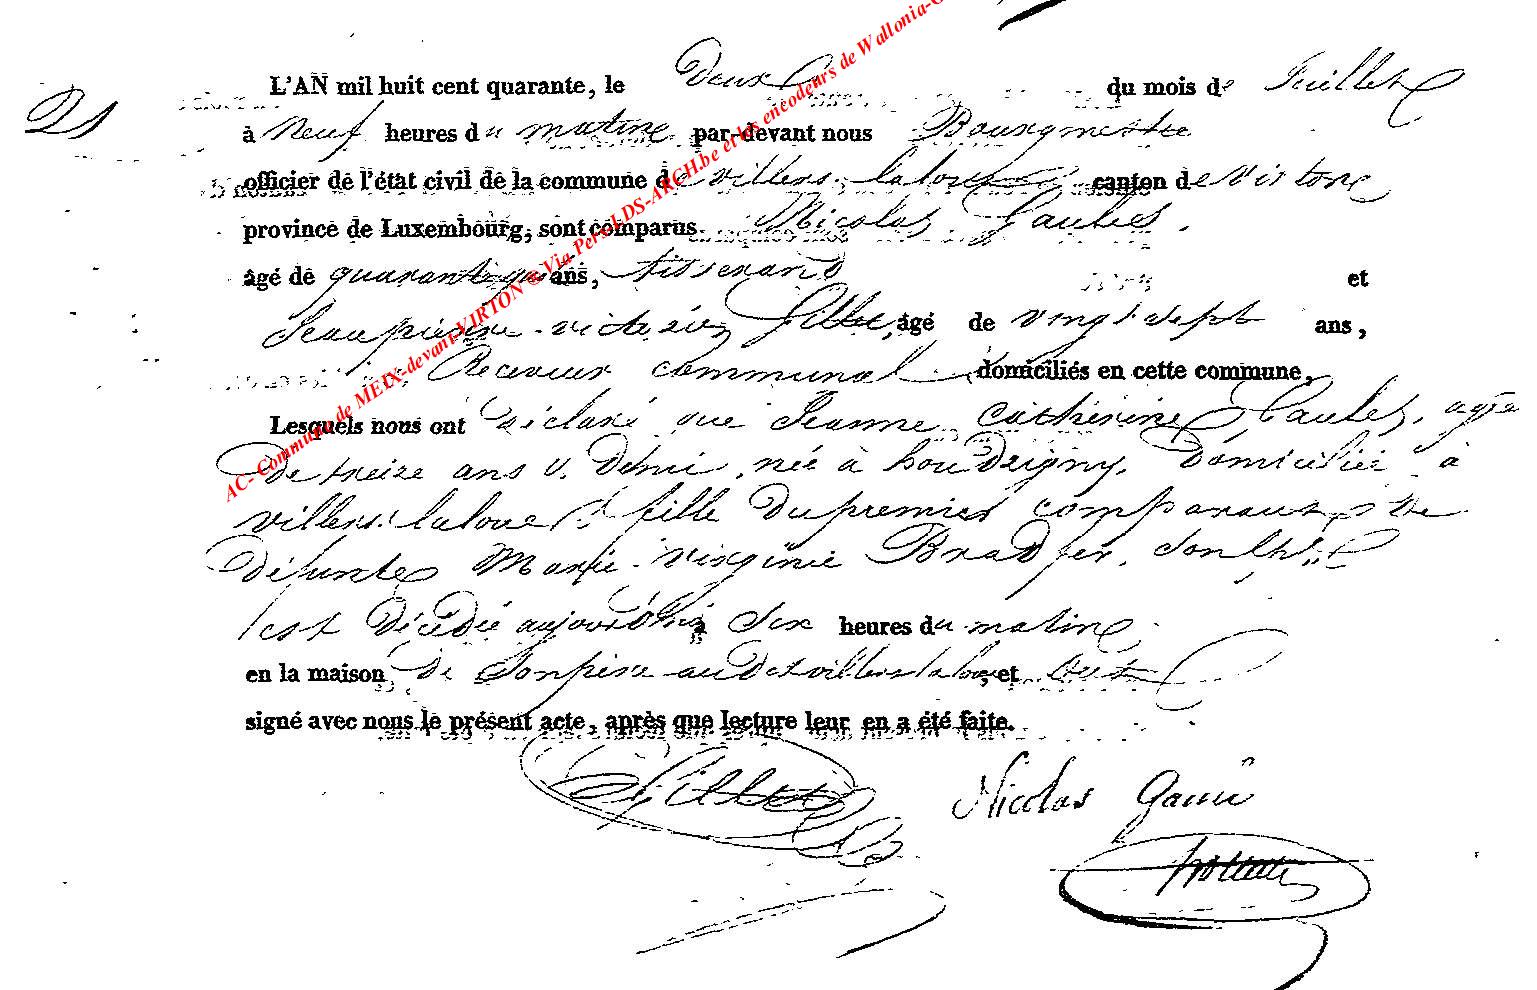 21
L'AN mil huit cent quarante, le Deux du mois de Juillet
à Neuf heures du matin par-devant nous Bourgmestre
officier de l'état civil de la commune de villers-laloue canton de Virton
province de Luxembourg, sont comparus Nicolas
âgé de ans, tisserand et
Jeanpierre victorin Gillet, âgé de vingt sept ans,
Receveur communal domiciliés en cette commune,
Lesquels nous ont déclaré que Jeanne Catherine agée
De treize ans & Demi, née à houdrigny, Domiciliée à
villers-laloue fille Du premier comparant & De
Défunte Marie virginie Bradfer,
est Décédée aujourd'hui à Six heures du matin
en la maison De Son père audit villers laloue, et ont
signé avec nous le présent acte, après que lecture leur en a été faite.
Gillet Nicolas
AC-Commune de MEIX-devant-VIRTON ® Via Pers-LDS-ARCH.be et les encodeurs de Wallonia-